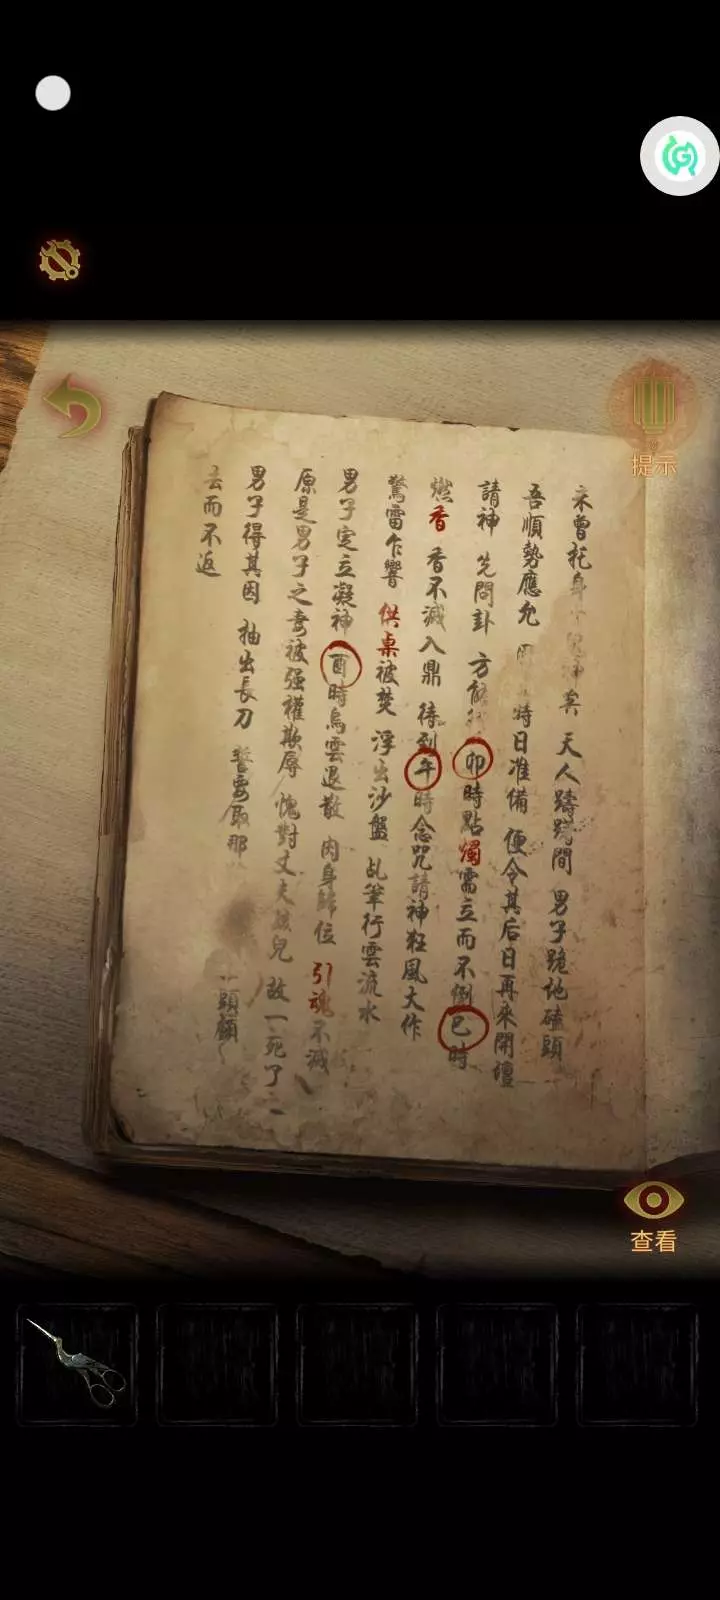 提示
未曾托身
矣 天人躊躇間 男子跪地磕頭
吾順勢應允
時日准備 便令其后日再來開壇
請神 先問卦 方能
卯時點燭需立而不倒巳時
燃香 香不滅入鼎 待到午時念咒請神狂風大作
驚雷乍響 供桌被焚 浮出沙盤 乩筆行雲流水
男子定立凝神 酉時烏雲退散 肉身歸位 引魂不滅
原是男子之妻被强權欺辱 愧對丈夫孩兒 故一死了之
男子得其因 抽出長刀 誓要取那
頭顱
去而不返
查看